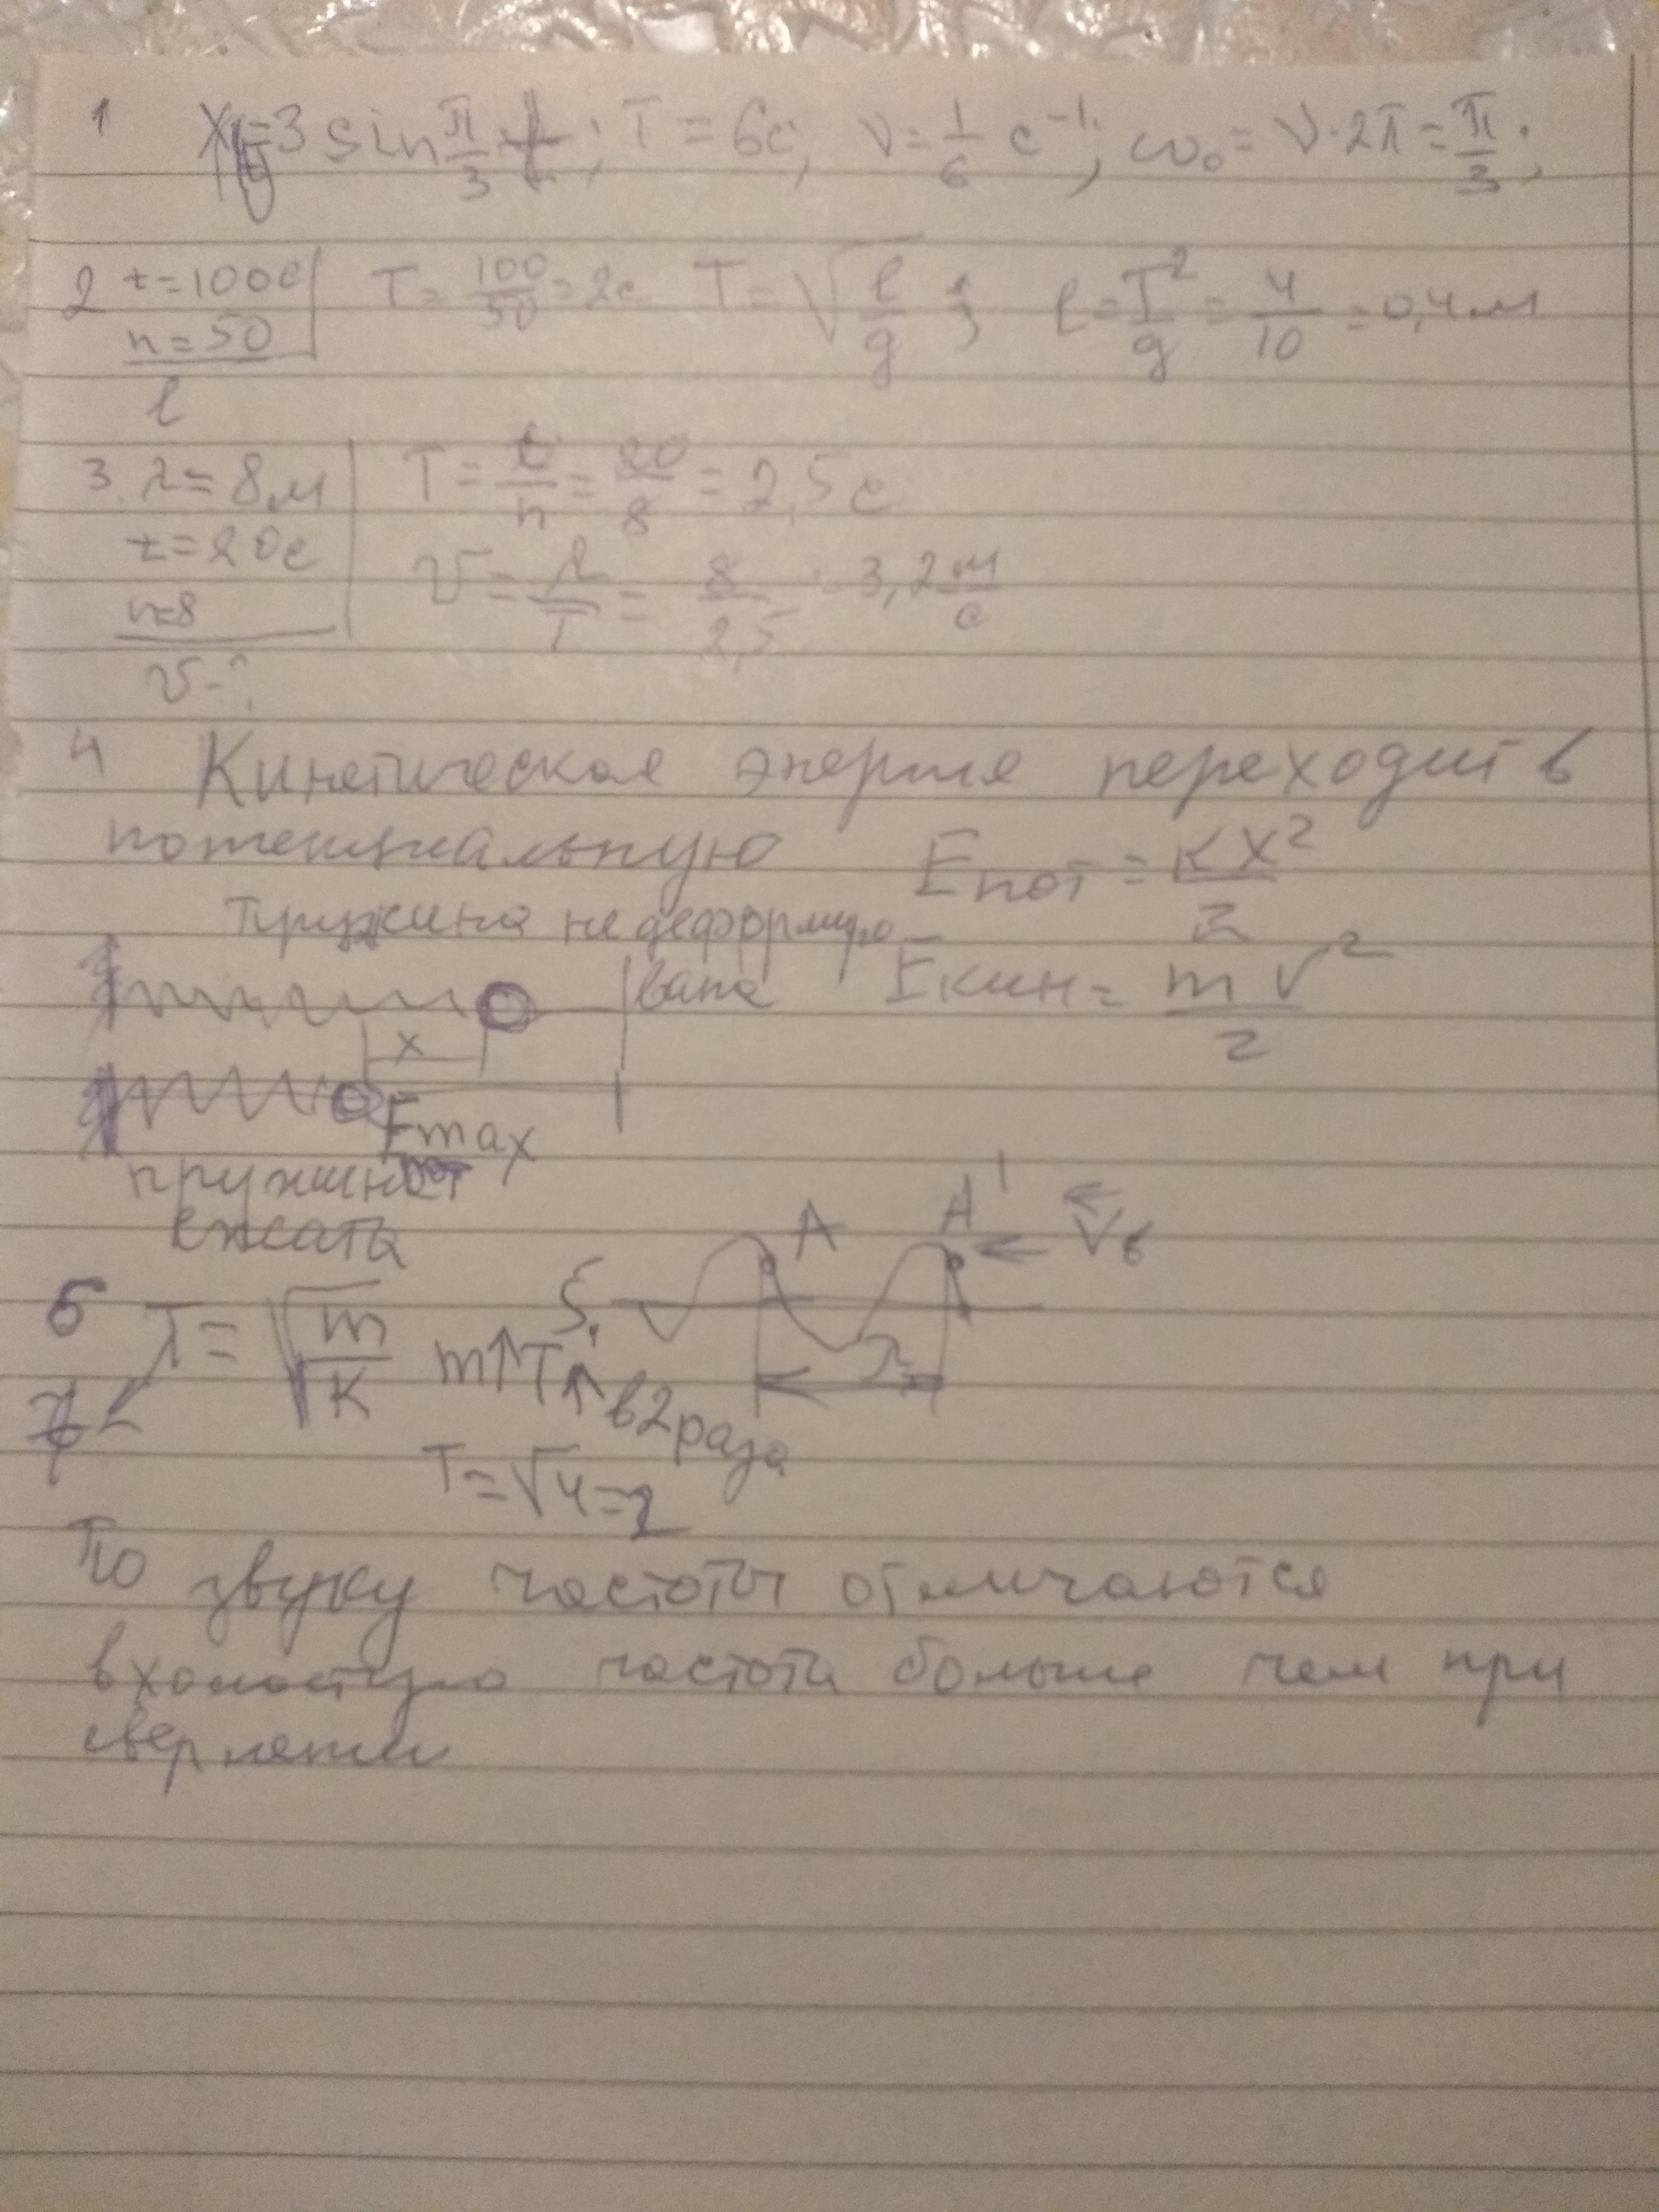 1 x=3 sin π/3 t; T = 6c; ν = 1/6 c⁻¹; ω₀ = ν·2π = π/3;
2 t=100c T = 100/50 = 2c T = √(l/g) l = T²/g = 4/10 = 0,4 м
n=50
l
3. λ = 8м T = t/n = 20/8 = 2,5 c
t=20c
n=8 v = λ/T = 8/2,5 3,2 м/c
v-?
4 Кинетическая энергия переходит в
потенциальную Eпот = kx²/2
пружина не деформиро
вана Eкин = mv²/2
x
Fmax
пружина
сжата
A A' Vв
5 T = √(m/k) m↑T↑ в 2 раза λ
7
T = √4 = 2
По звуку частоты отличаются
в холостую частота больше чем при
сверлении